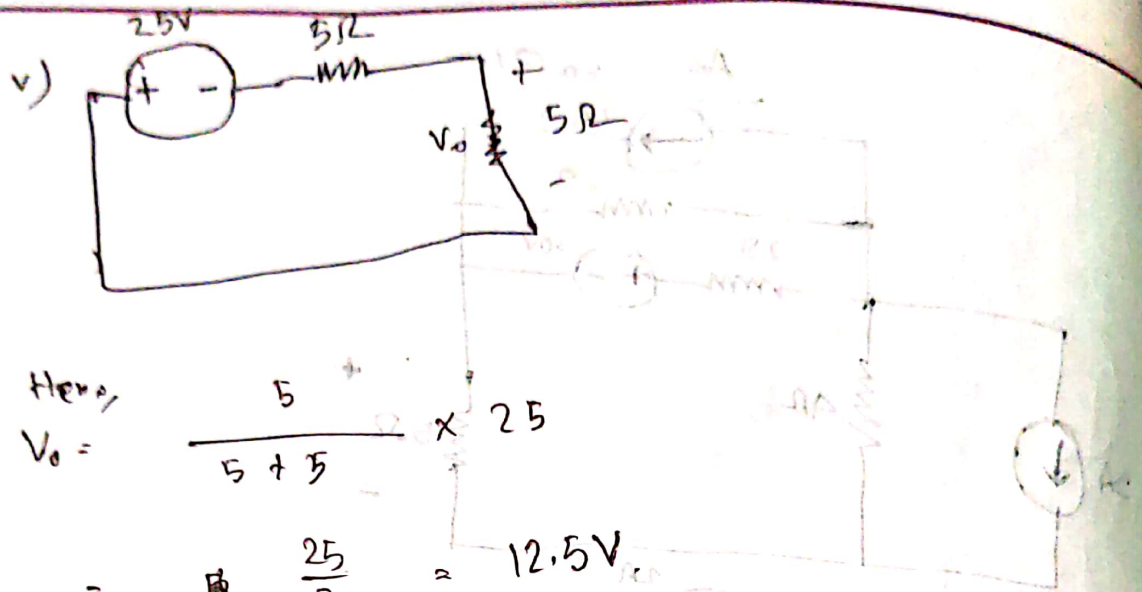 25V 5Ω
v) + - +
V₀ 5Ω
-
Here,
V₀ = 5 / 5 + 5 × 25
= 25 = 12.5V.